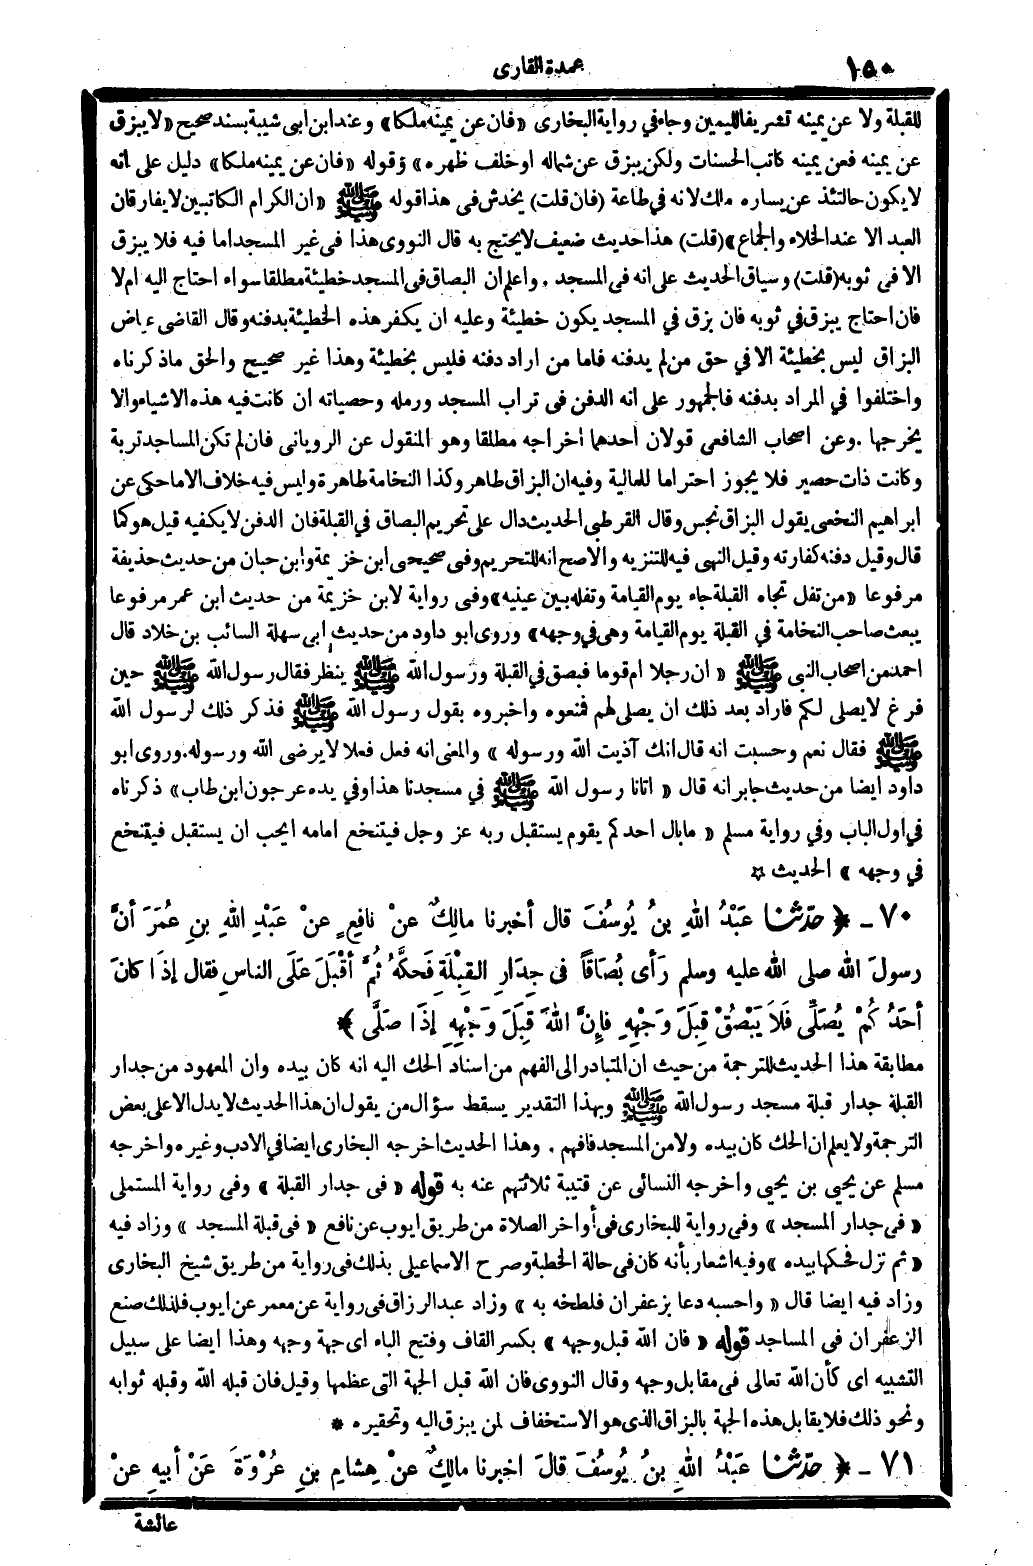 ١٥٠ عمدة القارى
للقبلة ولا عن يمينه تشريفا لليمين وجاء في رواية البخارى « فان عن يمينه ملكا » وعند ابن ابى شيبة بسند صحيح « لا يبزق
عن يمينه فعن يمينه كاتب الحسنات ولكن يبزق عن شماله او خلف ظهره » وقوله « فان عن يمينه ملكا » دليل على انه
لا يكون حالتئذ عن يساره ملك لانه في طاعة (فان قلت) يخدش فى هذا قوله ﷺ « ان الكرام الكاتبين لا يفارقان
العبد الا عند الخلاء والجماع » (قلت) هذا حديث ضعيف لا يحتج به قال النووى هذا فى غير المسجد اما فيه فلا يبزق
الا فى ثوبه (قلت) وسياق الحديث على انه فى المسجد . واعلم ان البصاق فى المسجد خطيئة مطلقا سواء احتاج اليه ام لا
فان احتاج يبزق في ثوبه فان بزق في المسجد يكون خطيئة وعليه ان يكفر هذه الخطيئة بدفنه وقال القاضى عياض
البزاق ليس بخطيئة الا في حق من لم يدفنه فاما من اراد دفنه فليس بخطيئة وهذا غير صحيح والحق ما ذكرناه
واختلفوا في المراد بدفنه فالجمهور على انه الدفن فى تراب المسجد ورمله وحصياته ان كانت فيه هذه الاشياء والا
يخرجها . وعن اصحاب الشافعى قولان أحدهما اخراجه مطلقا وهو المنقول عن الرويانى فان لم تكن المساجد تربة
وكانت ذات حصير فلا يجوز احتراما للمالية وفيه ان البزاق طاهر وكذا النخامة طاهرة وليس فيه خلاف الا ما حكى عن
ابراهيم النخعى يقول البزاق نجس وقال القرطبى الحديث دال على تحريم البصاق في القبلة فان الدفن لا يكفيه قيل هو كما
قال وقيل دفنه كفارته وقيل النهى فيه للتنزيه والاصح انه للتحريم وفى صحيحى ابن خزيمة وابن حبان من حديث حذيفة
مرفوعا « من تفل تجاه القبلة جاء يوم القيامة وتفله بين عينيه » وفى رواية لابن خزيمة من حديث ابن عمر مرفوعا
يبعث صاحب النخامة في القبلة يوم القيامة وهى في وجهه » وروى ابو داود من حديث ابى سهلة السائب بن خلاد قال
احمد من اصحاب النبى ﷺ « ان رجلا ام قوما فبصق في القبلة ورسول الله ﷺ ينظر فقال رسول الله ﷺ حين
فرغ لا يصلى لكم فاراد بعد ذلك ان يصلى لهم فمنعوه واخبروه بقول رسول الله ﷺ فذكر ذلك لرسول الله
ﷺ فقال نعم وحسبت انه قال انك آذيت الله ورسوله » والمعنى انه فعل فعلا لا يرضى الله ورسوله . وروى ابو
داود ايضا من حديث جابر انه قال « اتانا رسول الله ﷺ في مسجدنا هذا وفي يده عرجون ابن طاب » ذكرناه
في اول الباب وفي رواية مسلم « ما بال احدكم يقوم يستقبل ربه عز وجل فيتنخع امامه ايحب ان يستقبل فيتنخع
في وجهه » الحديث ☆
٧٠ ـ ﴿ حدّثنا عَبْدُ اللهِ بنُ يُوسُفَ قال أخبرنا مالِكٌ عنْ نافِعٍ عنْ عَبْدِ اللهِ بنِ عُمَرَ أنَّ
رسولَ الله صلى الله عليه وسلم رَأى بُصَاقًا فى جِدَارِ القِبْلَةِ فَحَكَّهُ ثُمَّ أقْبَلَ عَلَى الناسِ فقال إذَا كانَ
أحَدُكُمْ يُصَلِّى فَلاَ يَبْصُقْ قِبَلَ وَجْهِهِ فإنَّ اللهَ قِبَلَ وَجْهِهِ إذَا صَلَّى ﴾
مطابقة هذا الحديث للترجمة من حيث ان المتبادر الى الفهم من اسناد الحك اليه انه كان بيده وان المعهود من جدار
القبلة جدار قبلة مسجد رسول الله ﷺ وبهذا التقدير يسقط سؤال من يقول ان هذا الحديث لا يدل الا على بعض
الترجمة ولا يعلم ان الحك كان بيده ولا من المسجد فافهم . وهذا الحديث اخرجه البخارى ايضا في الادب وغيره واخرجه
مسلم عن يحيى بن يحيى واخرجه النسائى عن قتيبة ثلاثتهم عنه به قوله « فى جدار القبلة » وفى رواية المستملى
« فى جدار المسجد » وفى رواية للبخارى فى أواخر الصلاة من طريق ايوب عن نافع « فى قبلة المسجد » وزاد فيه
« ثم نزل فحكها بيده » وفيه اشعار بأنه كان فى حالة الخطبة وصرح الاسماعيلى بذلك فى رواية من طريق شيخ البخارى
وزاد فيه ايضا قال « واحسبه دعا بزعفران فلطخه به » وزاد عبد الرزاق فى رواية عن معمر عن ايوب فلذلك صنع
الزعفران فى المساجد قوله « فان الله قبل وجهه » بكسر القاف وفتح الباء اى جهة وجهه وهذا ايضا على سبيل
التشبيه اى كأن الله تعالى فى مقابل وجهه وقال النووى فان الله قبل الجهة التى عظمها وقيل فان قبله الله وقبله ثوابه
ونحو ذلك فلا يقابل هذه الجهة بالبزاق الذى هو الاستخفاف لمن يبزق اليه وتحقيره *
٧١ ـ ﴿ حدّثنا عَبْدُ اللهِ بنُ يُوسُفَ قالَ اخبرنا مالِكٌ عنْ هِشامِ بنِ عُرْوَةَ عَنْ أبيهِ عنْ
عائشة